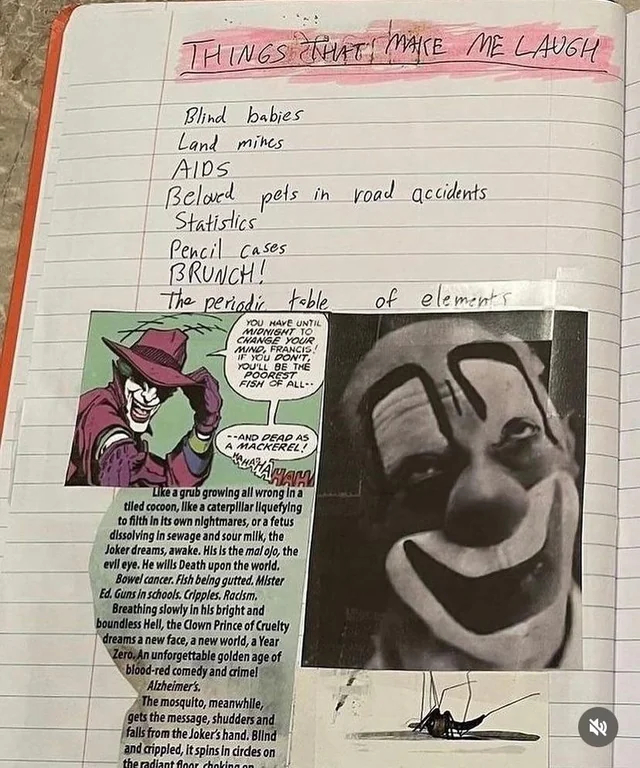 THINGS THAT MAKE ME LAUGH
Blind babies
Land mines
AIDS
Beloved pets in road accidents
Statistics
Pencil cases
BRUNCH!
The periodic table of elements
YOU HAVE UNTIL
MIDNIGHT TO
CHANGE YOUR
MIND, FRANCIS!
IF YOU DON'T,
YOU'LL BE THE
POOREST
FISH OF ALL--
--AND DEAD AS
A MACKEREL!
HAHAHA
HAH
Like a grub growing all wrong in a
tiled cocoon, like a caterpillar liquefying
to filth in its own nightmares, or a fetus
dissolving in sewage and sour milk, the
Joker dreams, awake. His is the mal ojo, the
evil eye. He wills Death upon the world.
Bowel cancer. Fish being gutted. Mister
Ed. Guns in schools. Cripples. Racism.
Breathing slowly in his bright and
boundless Hell, the Clown Prince of Cruelty
dreams a new face, a new world, a Year
Zero. An unforgettable golden age of
blood-red comedy and crime!
Alzheimer's.
The mosquito, meanwhile,
gets the message, shudders and
falls from the Joker's hand. Blind
and crippled, it spins in circles on
the radiant floor, choking on